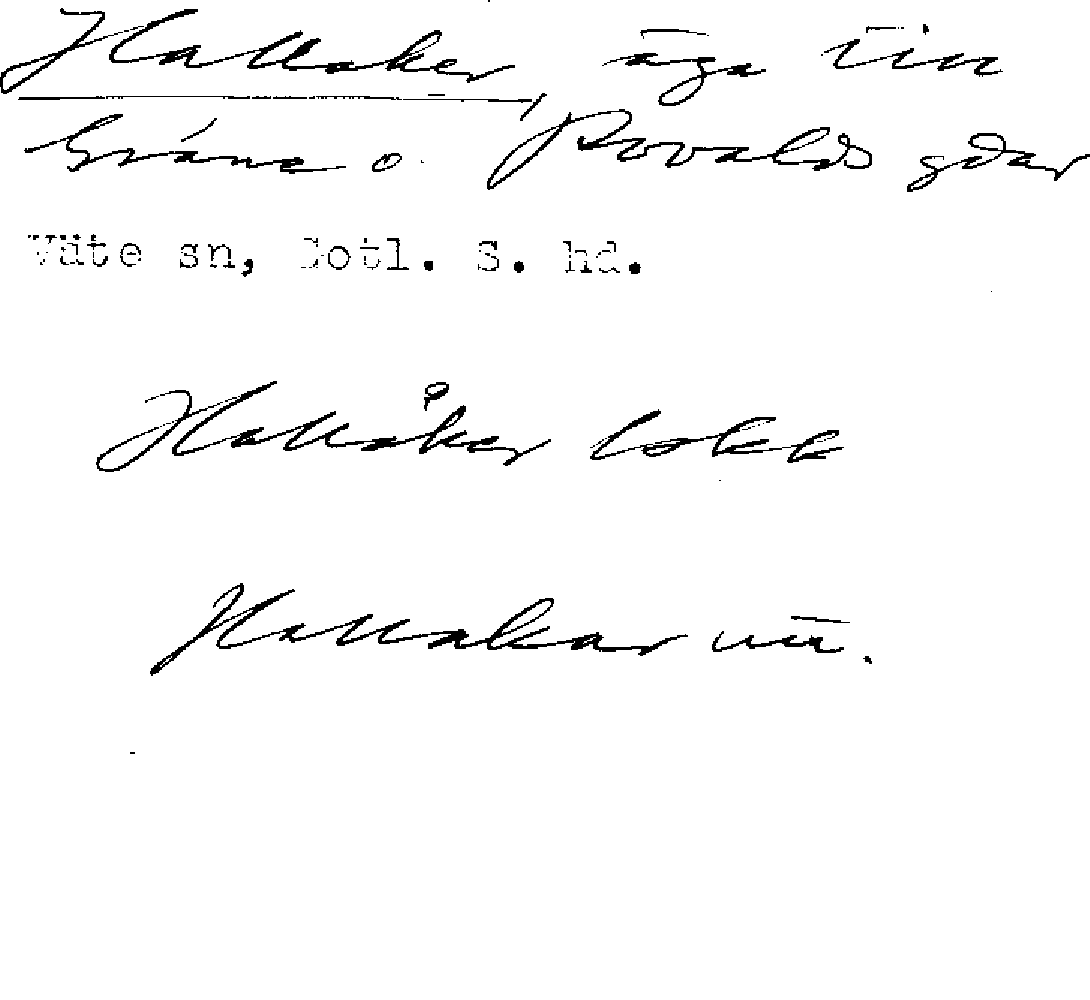 Hallaker, äga till
Gräne o. Rovalds gdar
Väte sn, Gotl. S. hd.
Hallåker lokk
Hallakar uü.